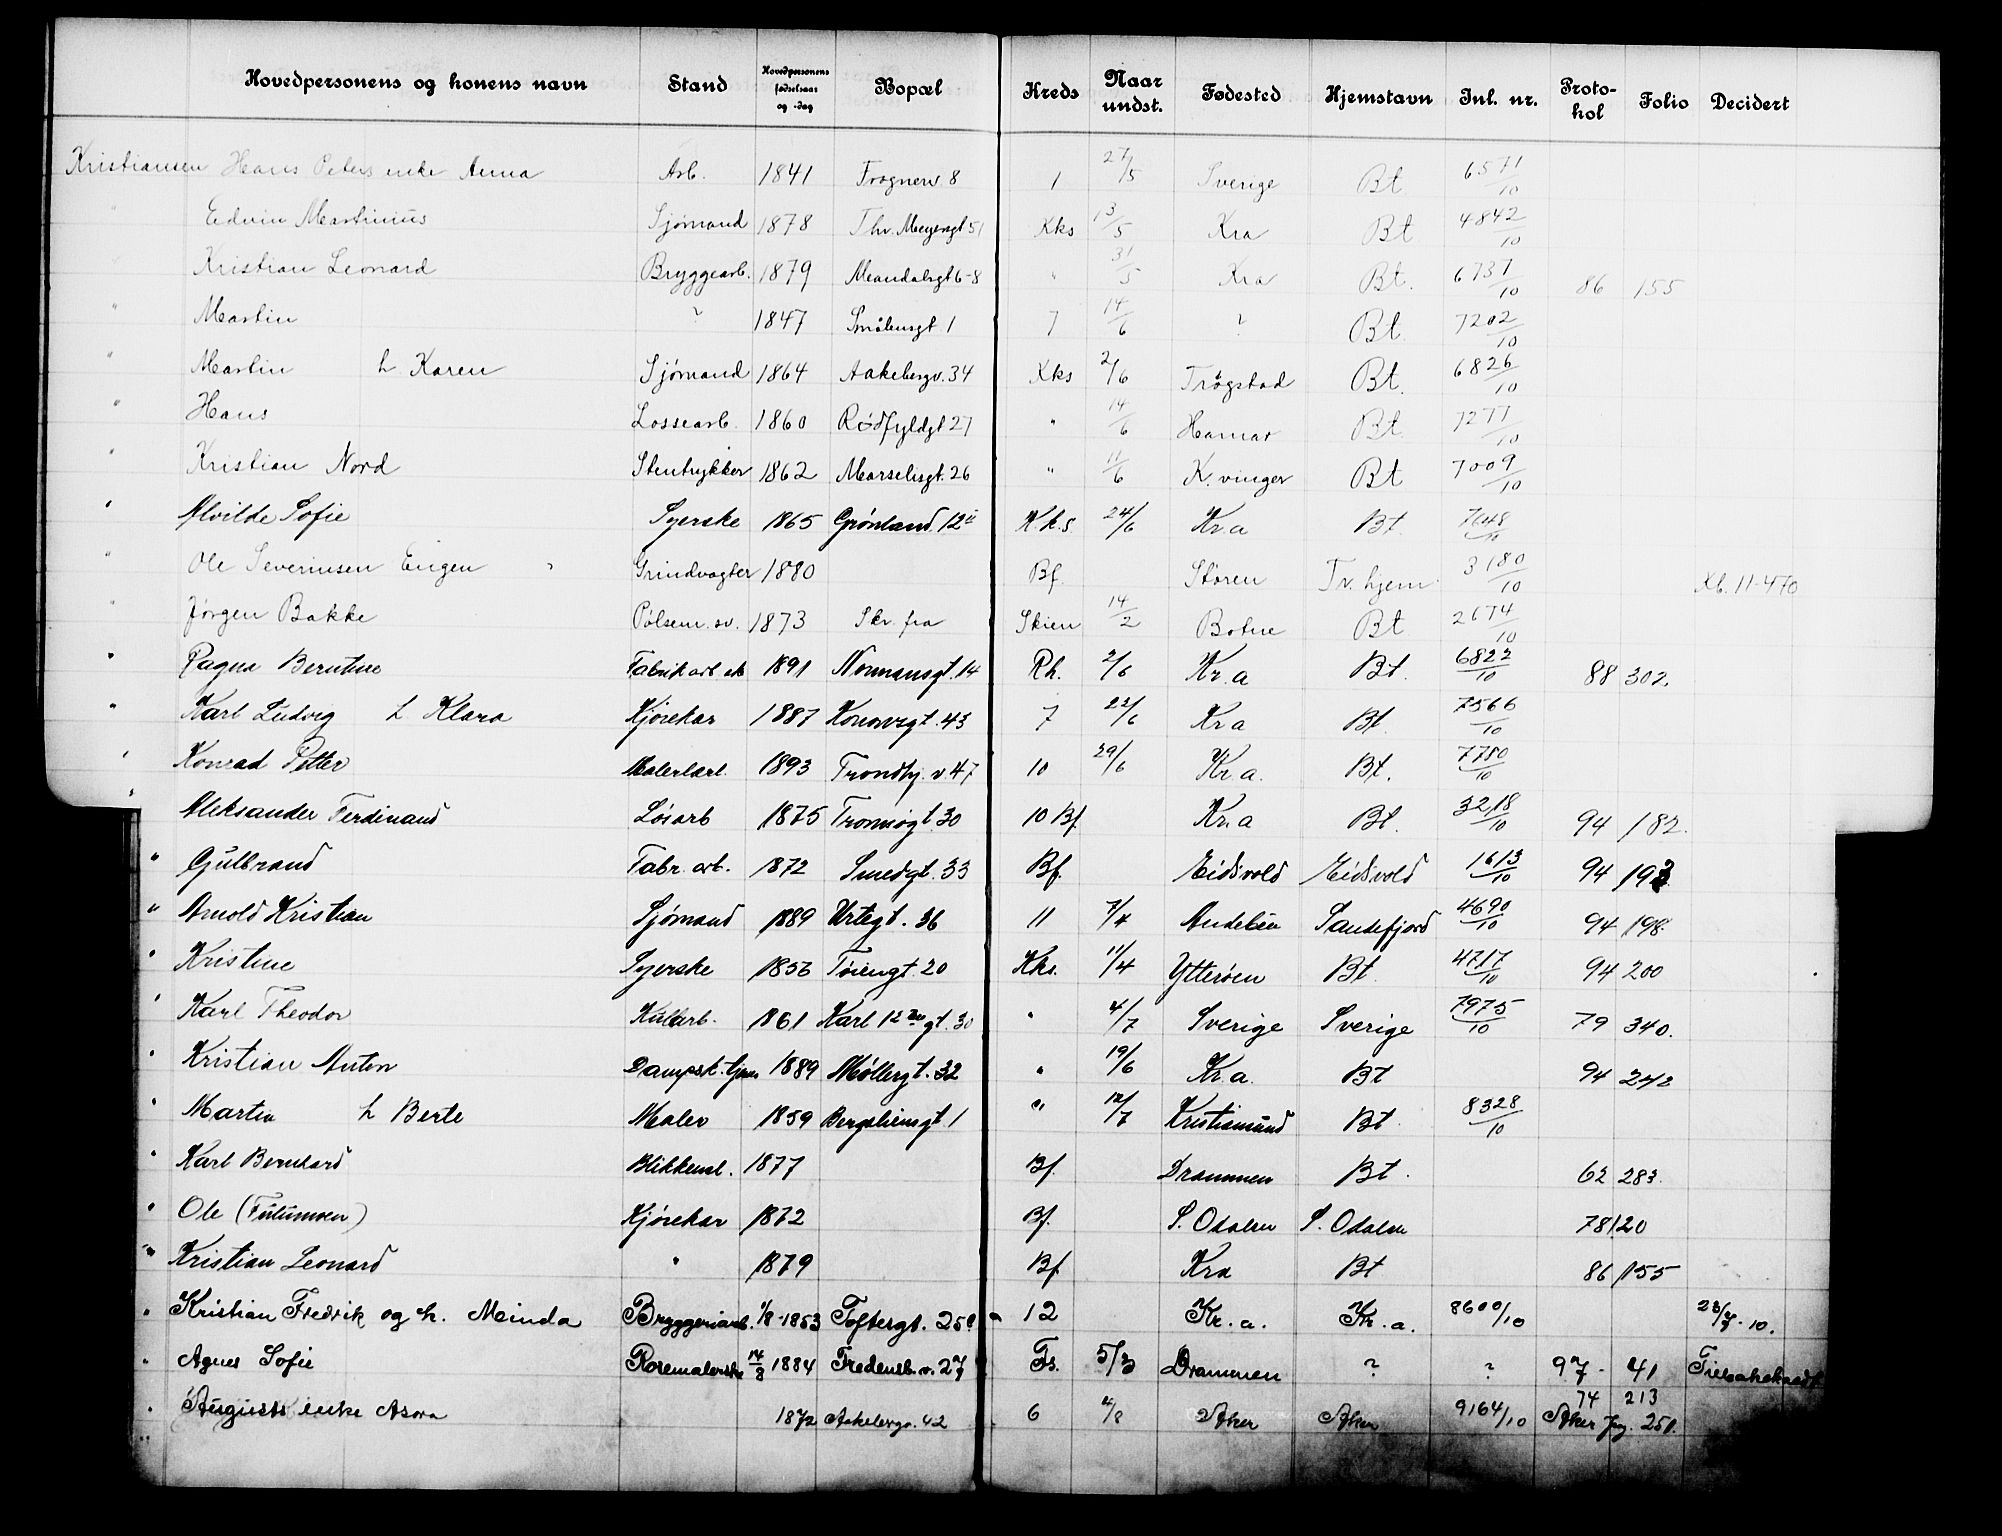 Hovedpersonens og konens navn Stand Hovedpersonens fødselsaar og -dag Bopæl Kreds Naar undst. Fødested Hjemstavn Inl. nr. Protokol Folio Decidert
Kristiansen Hans Peters enke Anna Arb. 1841 Frognerv. 8 1 27/5 Sverige Bt 6571/10
" Edvin Martinius Sjømand 1878 Thv. Meyersgt 51 Kks 13/5 Kra Bt 4842/10
Kristian Leonard Bryggearb. 1879 Mandalsgt 6-8 " 31/5 Kra Bt. 6737/10 86 155
" Martin ? 1847 Smålensgt 1 7 14/6 ? Bt. 7202/10
" Martin h Karen Sjømand 1864 Aakebergv. 34 Kks 2/6 Trøgstad Bt. 6826/10
" Hans Lossearb. 1860 Rødfyldgt 27 " 14/6 Hamar Bt. 7277/10
" Kristian Nord Stentrykker 1862 Marselisgt. 26 " 11/6 K.vinger Bt 7009/10
" Alvilde Sofie Syerske 1865 Grønland. 12 K.k.s. 24/6 Kr.a Bt. 7648/10
" Ole Severinsen Engen Grindvogter 1880 Bf. Støren Tv. hjem 3180/10 Kb. 11-470
" Jørgen Bakke Pølsem. sv. 1873 Skr. fra Skien 14/2 Botne Bt 2674/10
" Ragna Berntine Fabrikarb. 1891 Normansgt. 14 Rh. 2/6 Kr.a Bt. 6822/10 88 302.
" Karl Ludvig h. Klara Kjørekar 1887 Konowsgt. 43 7 22/6 Kr.a Bt. 7566/10
" Konrad Petter Malerlærl. 1893 Trondhj. v. 47 10 29/6 Kr.a. Bt. 7780/10
" Aleksander Ferdinand Løsarb 1875 Tromsøgt. 30 10 Bf. Kr.a Bt. 3218/10 94 182.
" Gulbrand Fabr. arb. 1872 Smedgt. 33 Bf. Eidsvold Eidsvold 1613/10 94 193
" Arnold Kristian Sjømand 1889 Urtegt. 36 11 7/4 Andebu Sandefjord 4690/10 94 198.
" Kristine Syerske 1856 Tøiengt. 20 Kks. 11/4 Ytterøen Bt. 4717/10 94 200
" Karl Theodor Kularb. 1861 Karl 12 gt. 30 " 4/7 Sverige Sverige 7975/10 79 340.
" Kristian Anton Dampsk. 1889 Møllergt. 32 " 19/6 Kr.a. Bt 94 242
" Martin h Berte Maler 1859 Bergsliensgt 1 " 12/7 Kristiansund Bt 8328/10
" Karl Bernhard Blikkensl. 1877 Bf. Drammen Bt. 62 283.
" Ole (Furumoen) Kjørekar 1872 Bf. S. Odalen S. Odalen 78 120
" Kristian Leonard " 1879 Bf Kra Bt 86 155
" Kristian Fredrik og h. Minda Bryggeriarb. 1/8-1853 Toftergt. 25 12 Kr.a. Kr.a. 8600/10 23/7-10.
" Agnes Sofie Rosemalerske 14/8 1884 Fredensb.v. 27 Fs. 5/3 Drammen ? ? 97- 41
" Augusts enke Asora 1872 Aakebergv. 42 6 4/8 Aker Aker 9164/10 74 213
Aker 251.